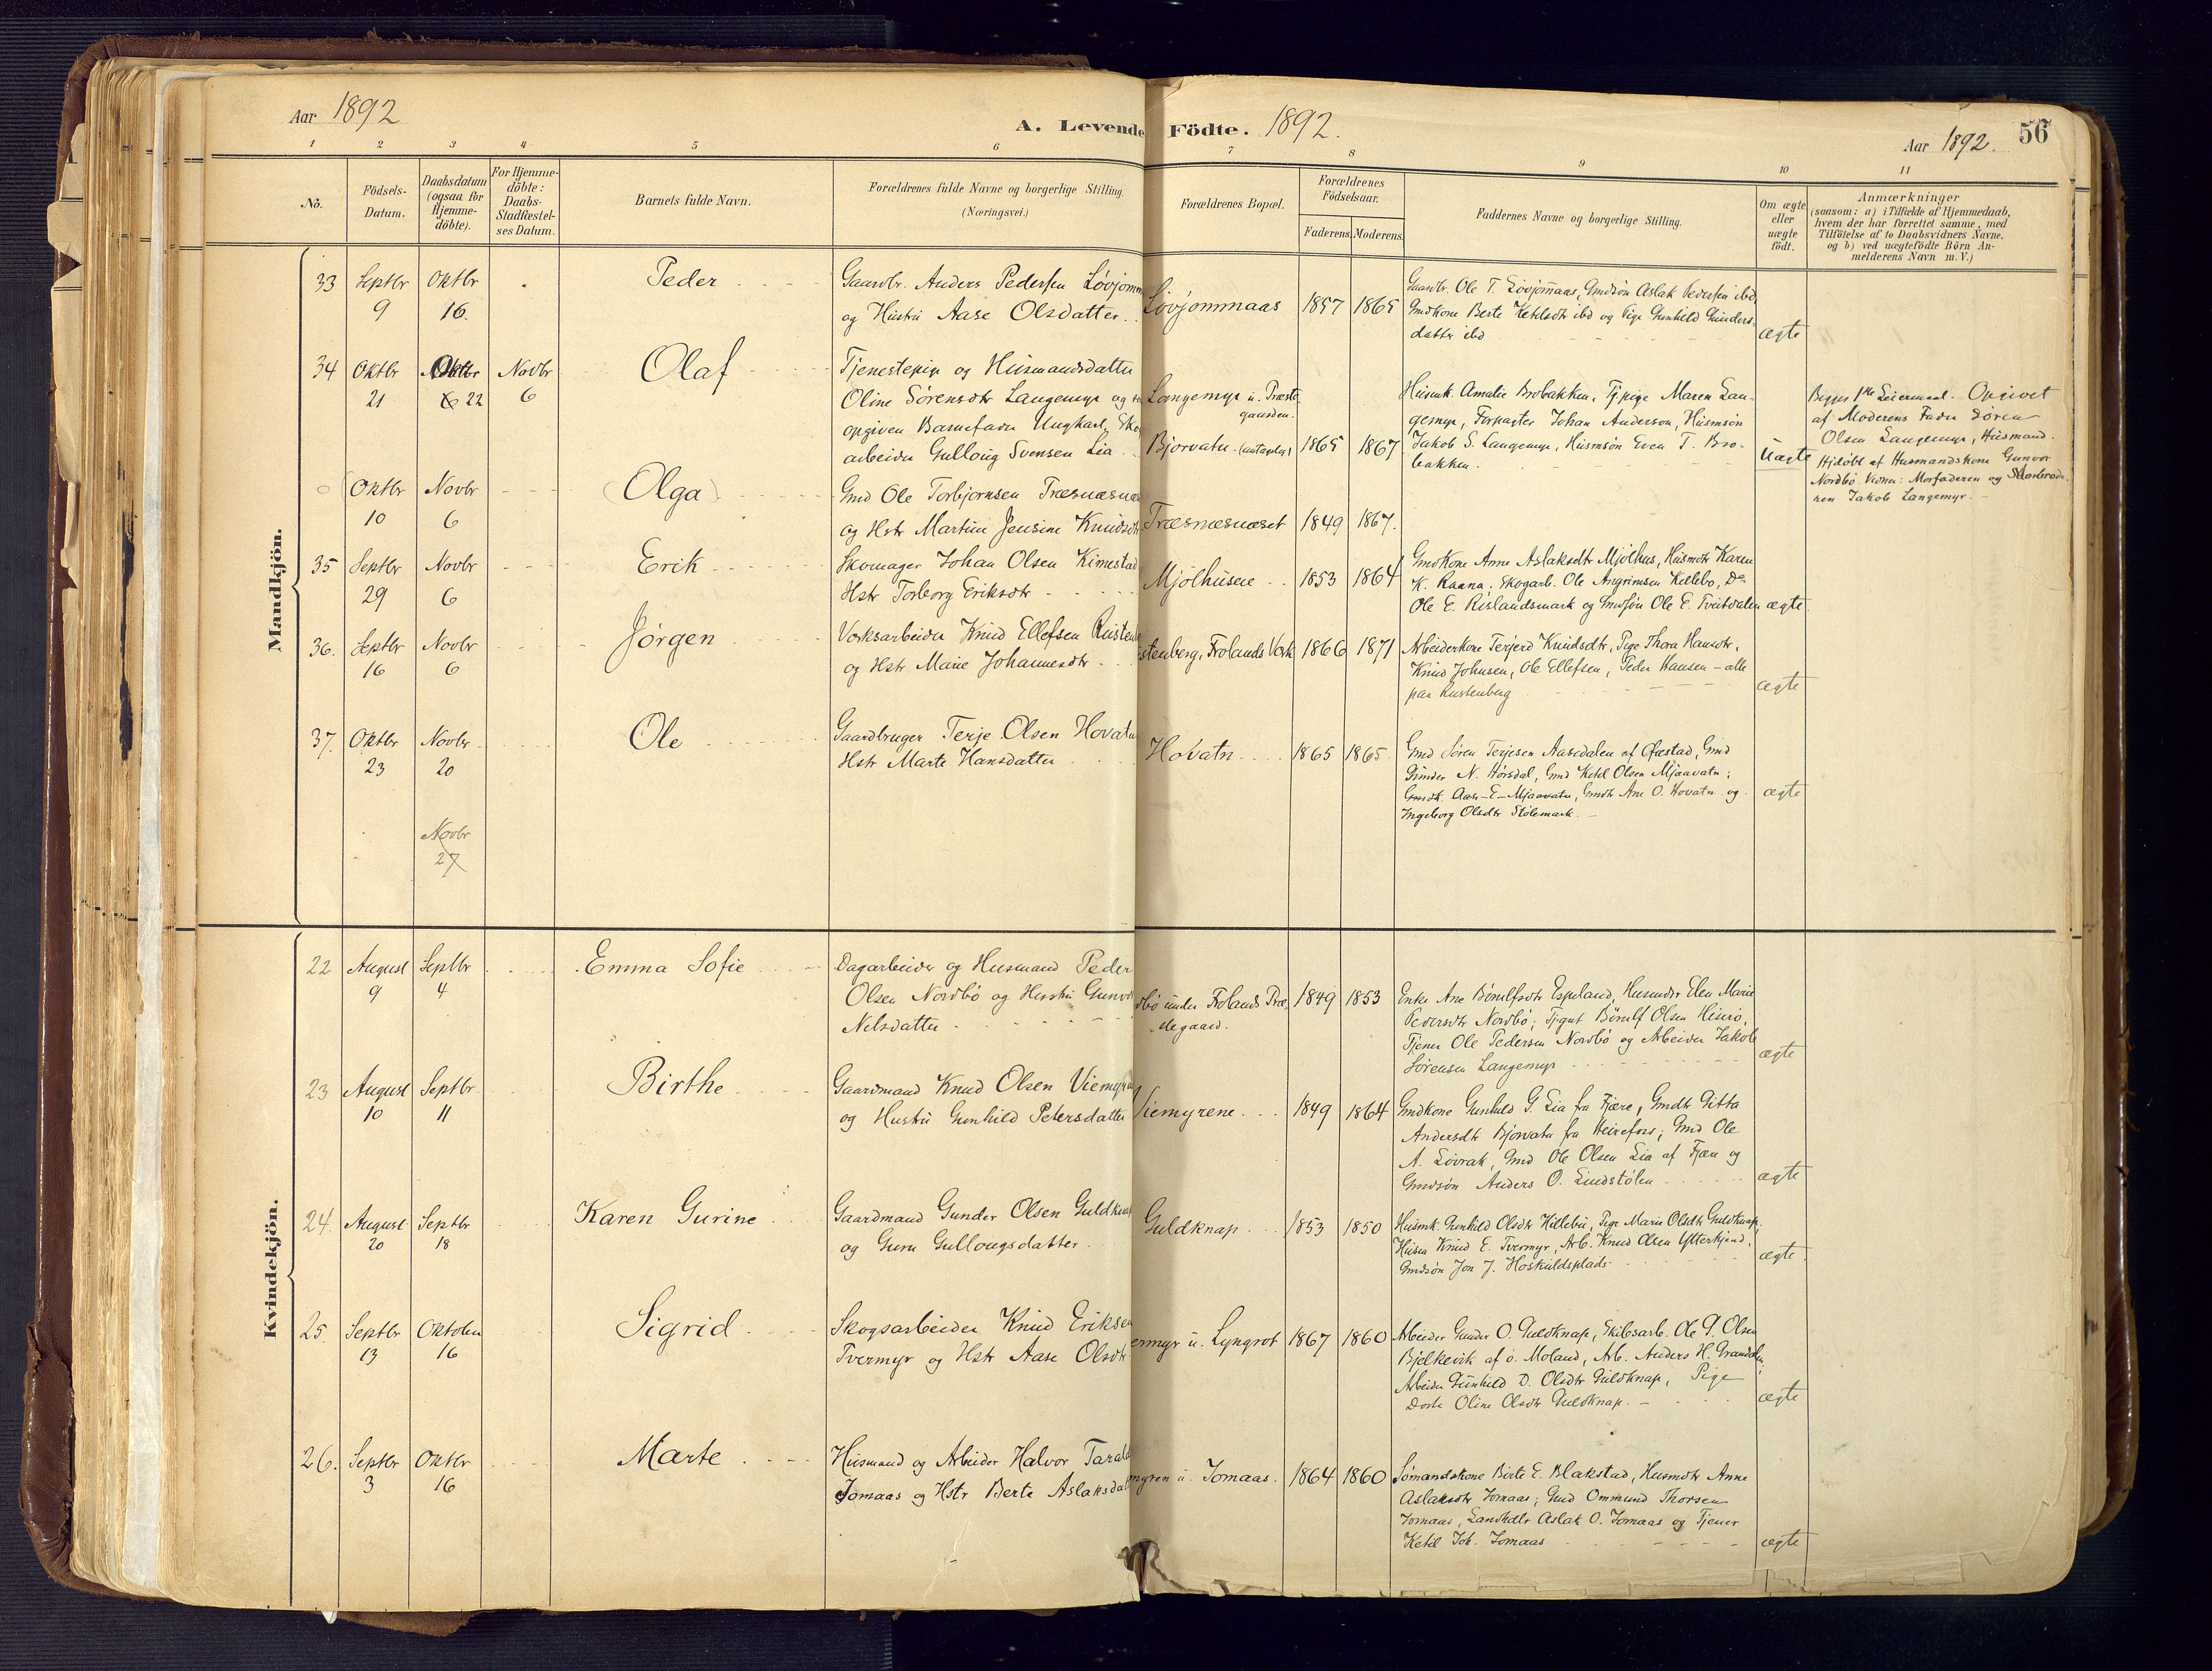 Aar 1892
A. Levende Födte. 1892.
Aar 1892. 56
1 2 3 4 5 6 7 8 9 10 11
No.
Födsels-Datum.
Daabsdatum (ogsaa for Hjemme-döbte).
For Hjemme-döbte: Daabs-Stadfæstel-ses Datum.
Barnets fulde Navn.
Forældrenes fulde Navne og borgerlige Stilling.
(Næringsvei.)
Forældrenes Bopæl.
Forældrenes Födselsaar.
Faderens. Moderens.
Faddernes Navne og borgerlige Stilling.
Om ægte eller uægte födt.
Anmærkninger
(saasom: a) i Tilfælde af Hjemmedaab,
hvem der har forrettet samme, med
Tilföielse af to Daabsvidners Navne.
og b) ved uægtefödte Börn An-
melderens Navn m.V.)
Mandkjön.
33 Septbr 9 Oktbr 16. Peder
Gaardbr. Anders Pedersen Løvjomm
og Hustru Aase Olsdatter
Løvjommaas 1857 1865
Gaardbr. Ole T. Løvjommaas, Gmdsön Aslak Pedersen ibd
Gmdkone Berte Ketilsdtr ibd og Pige Gunhild Gunders-
datter ibd
ægte
34 Oktbr 21 Oktbr 22 Novbr 6 Olaf
Tjenestepige og Husmandsdatter
Oline Sörensdtr Langemyr og
opgiven Barnefader Ungkarl, Sko
arbeider Gulloug Svensen Lia
Langemyr u. Præste-
gaarden.
Bjorvatn 1865 1867
Husmk. Amalie Brobakken, Tj.pige Maren Lan-
gemyr, Forpagter Johan Anderson, Husmsön
Jakob S. Langemyr, Husmsön Even T. Bro-
bakken.
Uægte
Begges 1ste Leiermaal. Opgivet
af Moderens Fader Sören
Olsen Langemyr, Husmand.
Hjdöbt af Husmandskone Gunvor
Nordbö. Vidner: Morfaderen og Morbrode-
ren Jakob Langemyr.
Oktbr 10 Novbr 6 (Olga)
Gmd Ole Torbjornsen Træsnæsnæs
og Hstr Martine Jensine Knudsdtr
Træsnæsnæset 1849 1867.
35 Septbr 29 Novbr 6 Erik
Skomager Johan Olsen Kimestad
Hstr Torborg Eriksdtr
Mjölhusene 1853 1864
Gmdkone Anne Aslaksdtr Mjölhus, Husmdtr Karen
K. Raana, Skogarb. Ole Angrimsen Kellebo, Do
Ole E. Rislandsmark og Gmdsön Ole E. Tveitdalen
ægte
36. Septbr 16 Novbr 6 Jørgen
Verksarbeider Knud Ellefsen Rusten
og Hstr Marie Johannesdtr
stenberg, Frolands Verk 1866 1871
Arbeiderkone Terjerd Knudsdtr, Pige Thora Hansdtr,
Knud Johnsen, Ole Ellefsen, Peder Hansen - alle
paa Rustenberg
ægte
37. Oktbr 23 Novbr 20 Ole
Gaardbruger Terje Olsen Hovatn
Hstr Marte Hansdatter
Hovatn 1865 1865
Gmd Sören Terjesen Aasedalen af Øiestad, Gmd
Gunder N. Hörsdal, Gmd Ketil Olsen Mjaavatn;
Gmdk. Aase E. Mjaavatn, Gmdtr Ane O. Hovatn og
Ingeborg Olsdtr Stölemark.
ægte
Novbr 27
Kvindekjön.
22 August 9 Septbr 4 Emma Sofie
Dagarbeider og Husmand Peder
Olsen Nordbö og Hustru Gunvor
Nilsdatter
dbö under Frolands Præ-
stegaard. 1849 1853
Enke Ane Börulfsdtr Espeland, Husmdtr Elen Marie
Pedersdtr Nordbö; Tjgut Börulf Olsen Hiserö,
Tjener Ole Pedersen Nordbö og Arbeider Jakob
Sörensen Langemyr
ægte
23 August 10 Septbr 11 Birthe
Gaardmand Knud Olsen Viemyren
og Hustru Gunhild Petersdatter
Viemyrene 1849 1864
Gmdkone Gunhild G. Lia fra Fjære, Gmdtr Gitta
Andersdtr Bjorvatn fra Heirefoss; Gmd Ole
A. Lövrak, Gmd Ole Olsen Lia af Fjære og
Gmdsön Anders O. Lindstölen
ægte
24. August 20 Septbr 18 Karen Gurine
Gaardmand Gunder Olsen Guldknap
og Guru Gullougsdatter
Guldknap 1853 1850
Husmk. Gunhild Olsdtr Hillebu, Pige Marie Olsdtr Guldknap,
Husm Knud E. Tvermyr, Arb. Knud Olsen Ytterkjend.
Gmdsön Jon J. Hoskuldsplads
ægte
25. Septbr 13 Oktober 16 Sigrid
Skogsarbeider Knud Eriksen
Tvermyr og Hstr Aase Olsdtr
ermyr u. Lyngrot 1867 1860
Arbeider Gunder O. Guldknap, Skibsarb. Ole P. Olsen
Bjelkevik af ö. Moland, Arb. Anders H. Grandalen,
Arbeider Gunhild D. Olsdtr Guldknap, Pige
Dorte Oline Olsdtr Guldknap.
ægte
26. Septbr 3 Oktbr 16 Marte
Husmand og Arbeider Halvor Tarald
Jomaas og Hstr Berte Aslaksdat
myren u. Jomaas. 1864 1860
Sömandskone Birte E. Blakstad, Husmdtr Anne
Aslaksdtr Jomaas; Gmd Ommund Thorsen
Jomaas, Landhdlr Aslak O. Jomaas og Tjener
Ketil Joh. Jomaas
ægte